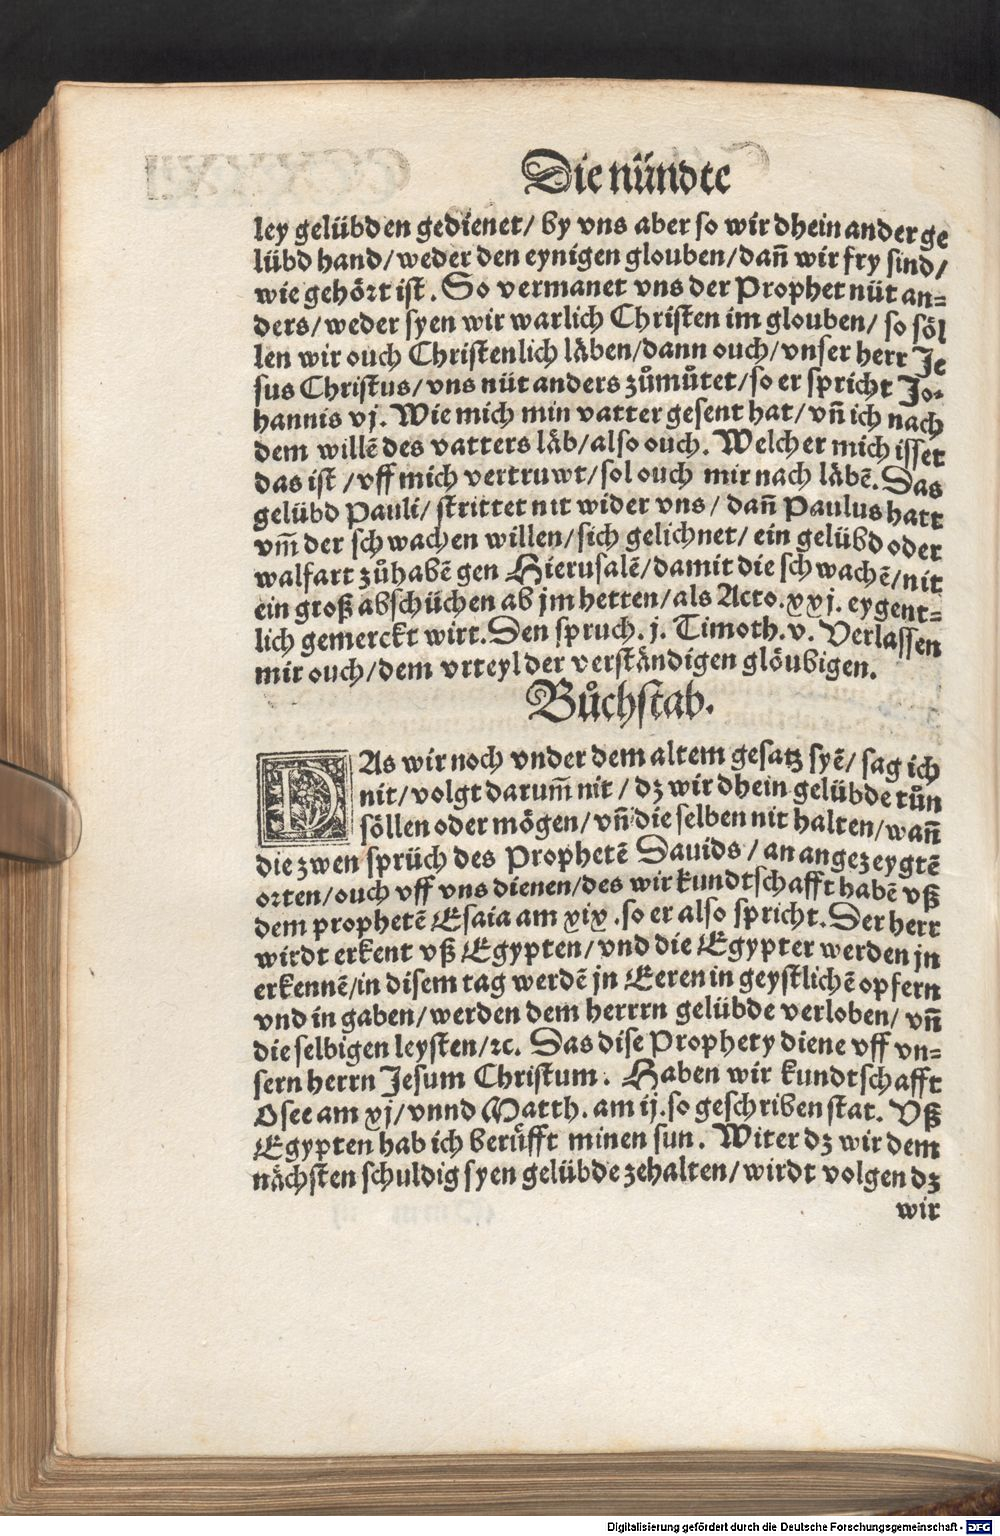 Die nündte
ley gelübden gedienet/ by vns aber so wir dhein ander ge
lübd hand/ weder den eynigen glouben/ dañ wir fry sind/
wie gehört ist. So vermanet vns der Prophet nüt an-
ders/ weder syen wir warlich Christen im glouben/ so söl
len wir ouch Christenlich läben/ dann ouch/ vnser herr Je
sus Christus/ vns nüt anders zůmůtet/ so er spricht Jo-
hannis vj. Wie mich min vatter gesent hat/ vñ ich nach
dem willẽ des vatters läb/ also ouch. Welcher mich isset
das ist/ vff mich vertruwt/ sol ouch mir nach läbẽ. Das
gelübd Pauli/ strittet nit wider vns/ dañ Paulus hatt
vm̃ der schwachen willen/ sich gelichnet/ ein gelübd oder
walfart zůhabẽ gen Hierusalẽ/ damit die schwachẽ/ nit
ein groß abschüchen ab jm hetten/ als Acto. xxj. eygent-
lich gemerckt wirt. Den spruch. j. Timoth. v. Verlassen
mir ouch/ dem vrteyl der verständigen glöubigen.
Bůchstab.
DAs wir noch vnder dem altem gesatz syẽ/ sag ich
nit/ volgt darum̃ nit/ dz wir dhein gelübde tůn
söllen oder mögen/ vñ die selben nit halten/ wañ
die zwen sprüch des Prophetẽ Dauids/ an angezeygtẽ
orten/ ouch vff vns dienen/ des wir kundtschafft habẽ vß
dem prophetẽ Esaia am xix. so er also spricht. Der herr
wirdt erkent vß Egypten/ vnd die Egypter werden jn
erkennẽ/ in disem tag werdẽ jn Eeren in geystlichẽ opfern
vnd in gaben/ werden dem herrrn gelübde verloben/ vñ
die selbigen leysten/ ꝛc. Das dise Prophety diene vff vn-
sern herrn Jesum Christum. Haben wir kundtschafft
Osee am xj/ vnnd Matth. am ij. so geschriben stat. Vß
Egypten hab ich berüfft minen sun. Witer dz wir dem
nächsten schuldig syen gelübde zehalten/ wirdt volgen dz
wir
Digitalisierung gefördert durch die Deutsche Forschungsgemeinschaft - DFG